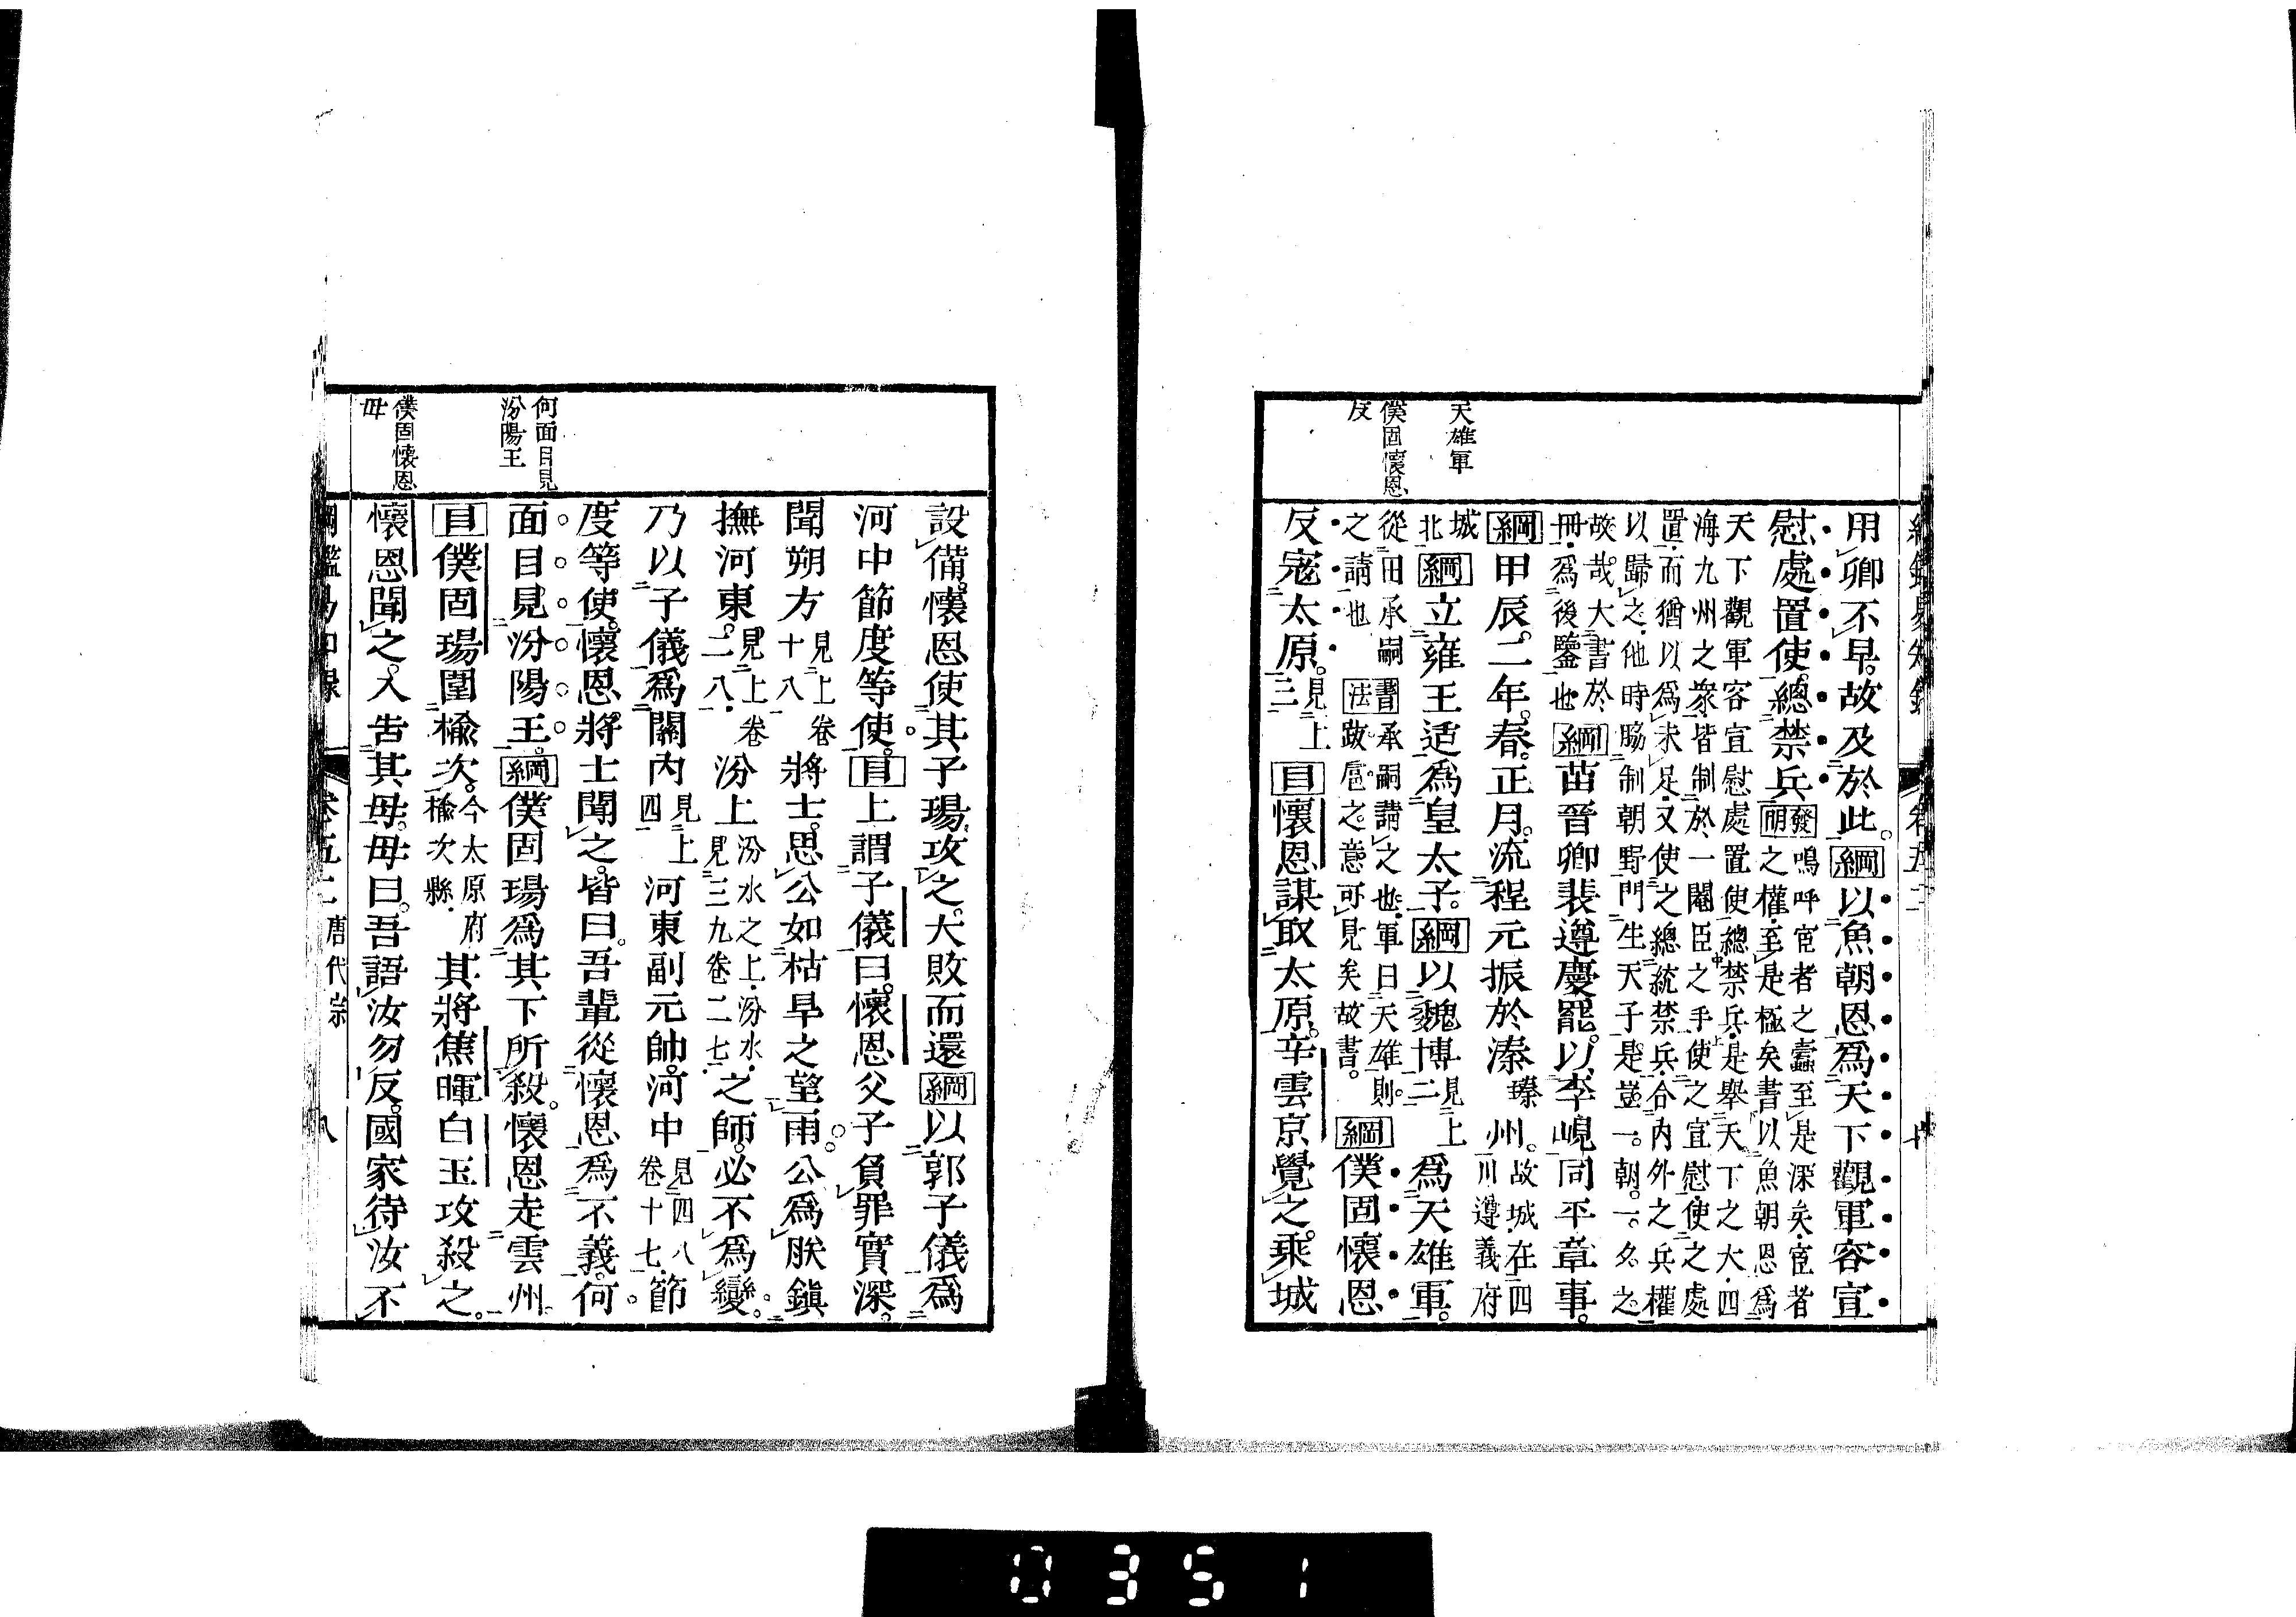 天雄軍
僕固懷恩
反
用卿不早。故及於此。綱以魚朝恩爲天下觀軍容宣
慰處置使。總禁兵發明嗚呼宦者之蠹至是深矣宦者
之權至是極矣書以魚朝恩爲
天下觀軍容宣慰處置使總禁兵是舉天下之大四
海九州之衆皆制於一閹臣之手使之宣慰使之處
置而猶以爲未足又使之總統禁兵合內外之兵權
以歸之他時脇制朝野門生天子是豈一朝一夕之
故哉大書於
冊爲後鑒也綱苗晉卿裴遵慶罷。以李峴同平章事。
綱甲辰。二年。春。正月。流程元振於溱瑧州。故城在四
川遵義府
城
北綱立雍王适爲皇太子。綱以魏博見上
二爲天雄軍。
從田承嗣
之請也書法承嗣請之也軍曰天雄則
跋扈之意可見矣故書。綱僕固懷恩
反寇太原。見上
三目懷恩謀取太原。辛雲京覺之。乘城
何面目見
汾陽王
僕固懷恩
母
設備。懷恩使其子瑒攻之。大敗而還綱以郭子儀爲
河中節度等使。目上謂子儀曰。懷恩父子負罪實深。
聞朔方見上卷
十八將士。思公如枯旱之望雨。公爲朕鎭
撫河東。見上卷
二八汾上汾水之上汾水
見三九卷二七之師。必不爲變。
乃以子儀爲關內見上
四河東副元帥。河中見四八
卷十七節
度等使。懷恩將士聞之。皆曰。吾輩從懷恩爲不義。何
面目見汾陽王。綱僕固瑒爲其下所殺。懷恩走雲州。
目僕固瑒圍楡次。今太原府
楡次縣其將焦暉白玉攻殺之。
懷恩聞之。入告其母。母曰。吾語汝勿反。國家待汝不
唐代宗
八
0351